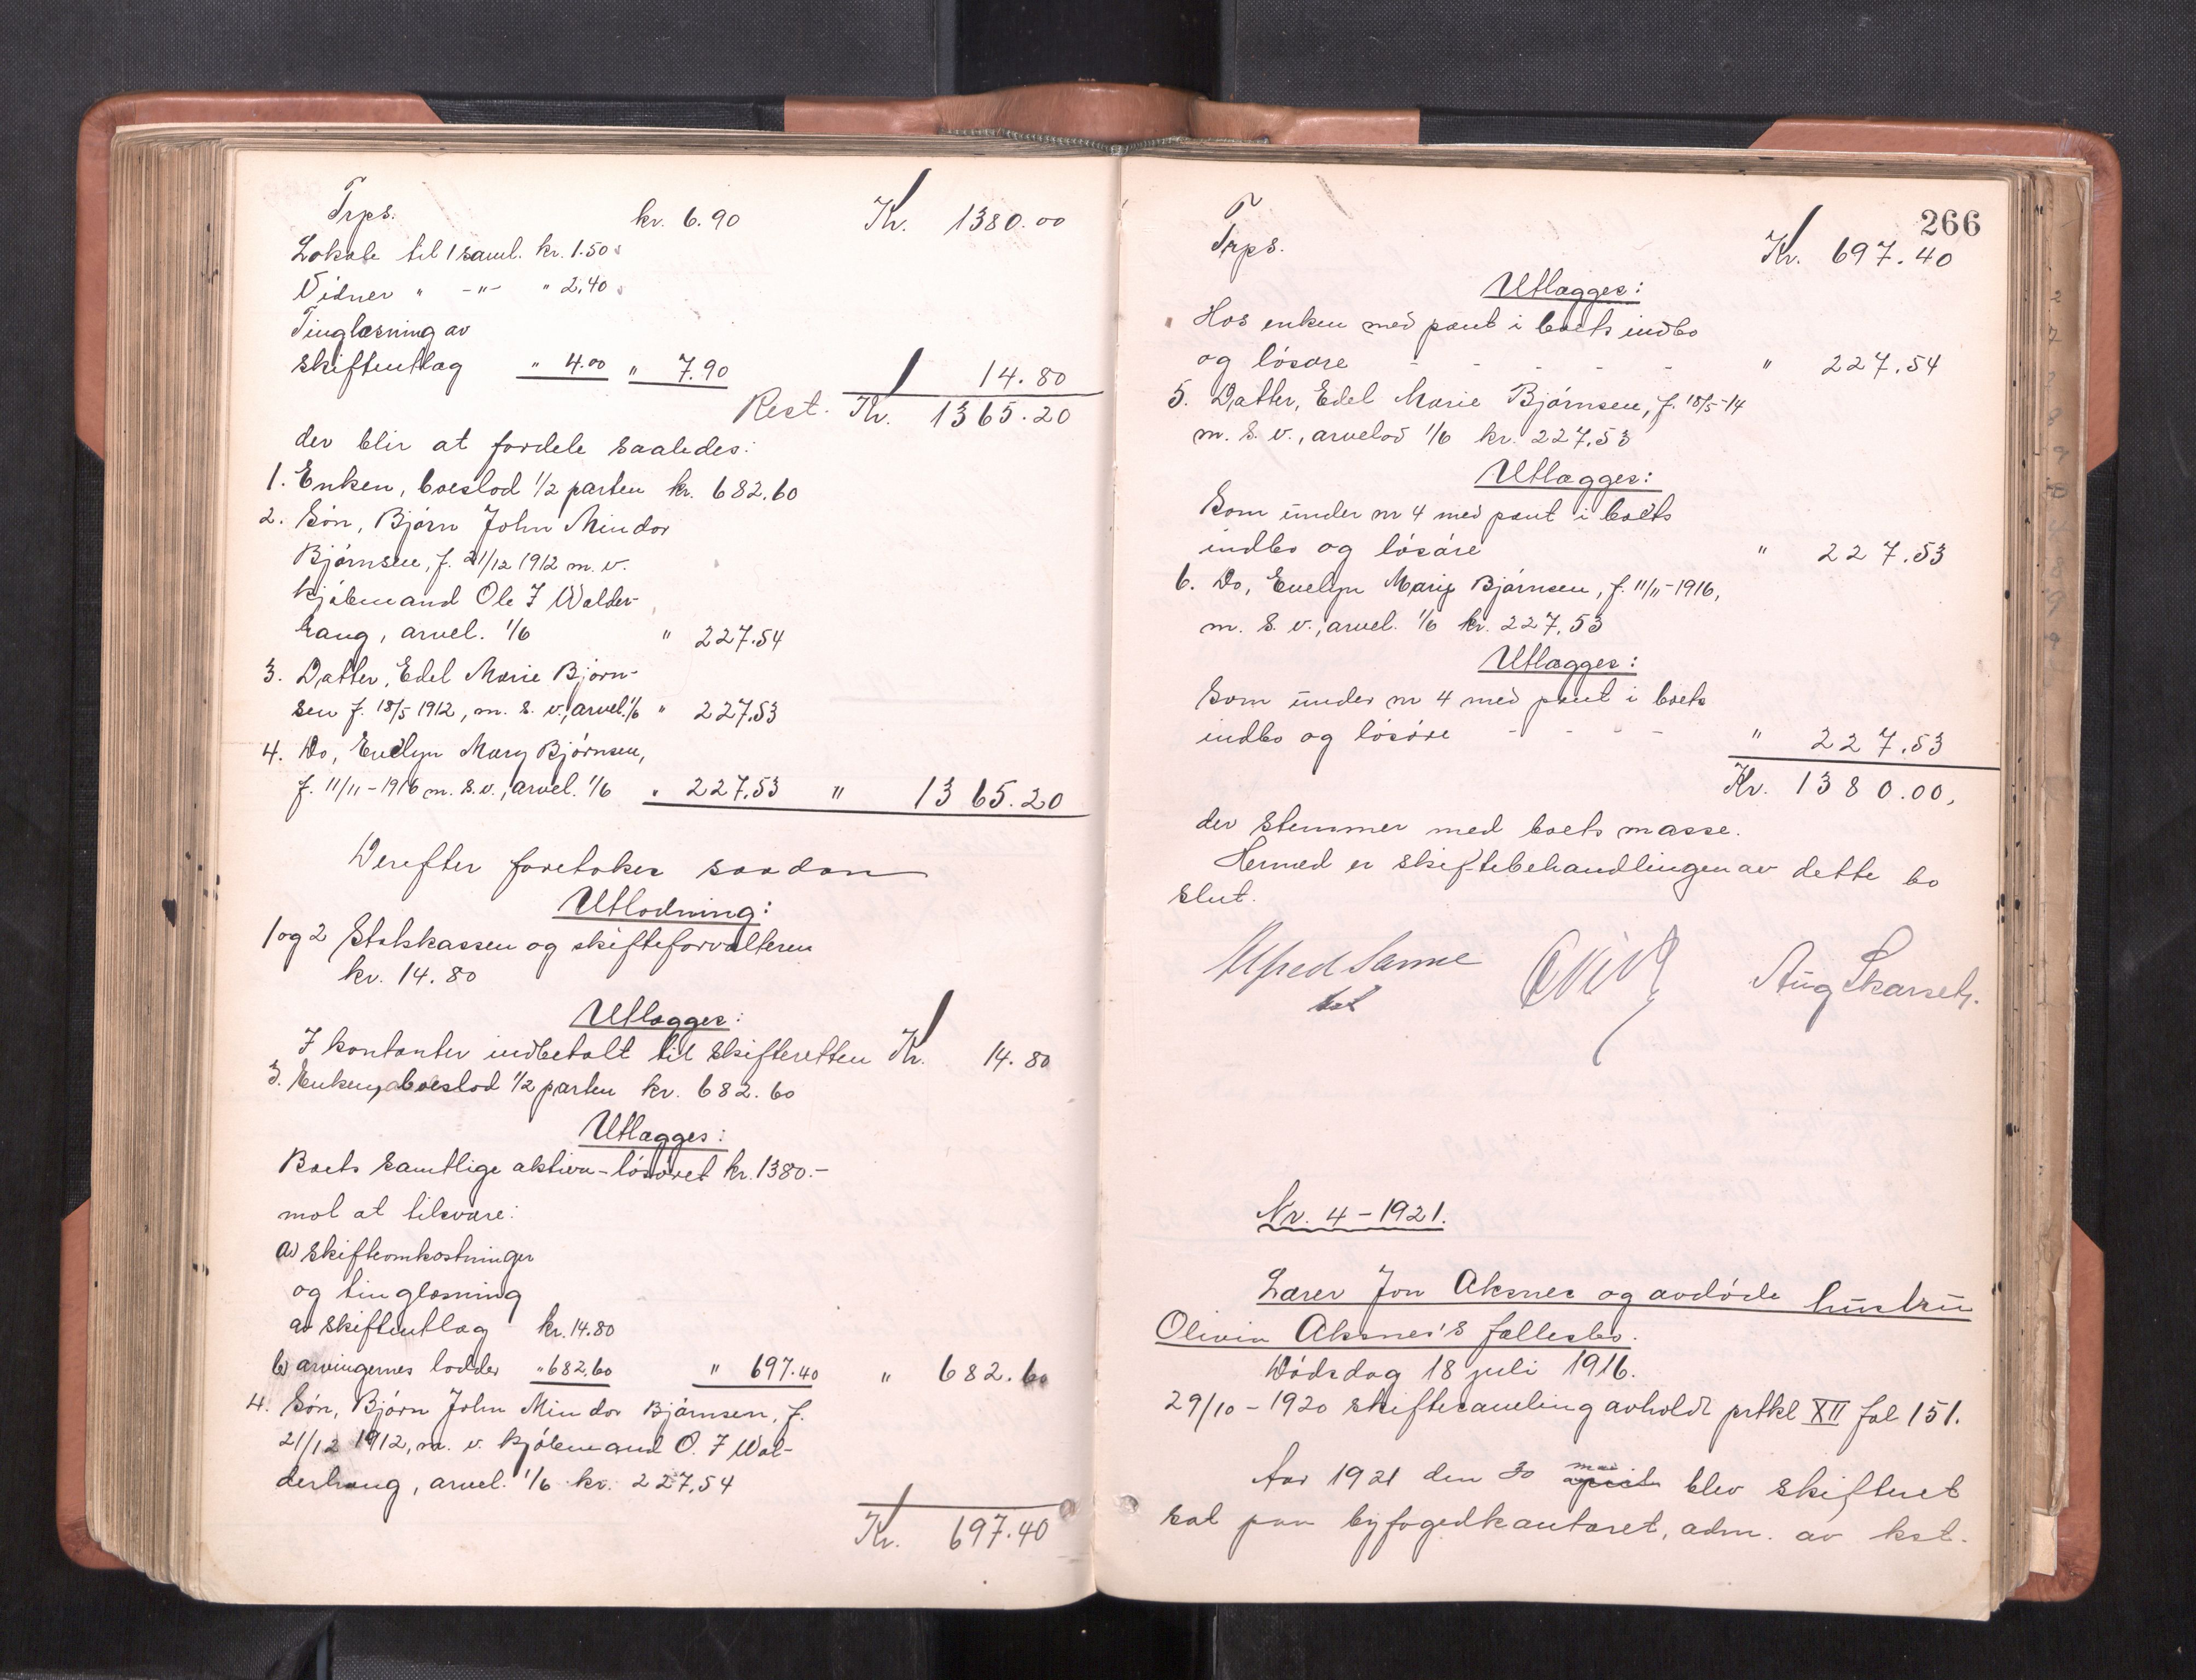 Trps. kr. 6.90 Kr. 1380.00
Lokale til 1 saml. kr. 1.50
Vidner " -"- " 2.40
Tinglæsning av
skifteutlæg " 4.00 " 7.90 14.80
Rest. Kr. 1365.20
der blir at fordele saaledes:
1. Enken, boeslod 1/2 parten kr. 682.60
2. Søn, Bjørn John Mindor
Bjørnsen, f. 21/12 1912 m. v.
kjøbmand Ole J Walder-
haug, arvel. 1/6 " 227.54
3. Datter, Edel Marie Bjørn-
sen f. 18/5 1912, m. s. v., arvel. 1/6 " 227.53
4. Do, Evelyn Mary Bjørnsen,
f. 11/11-1916 m. s. v., arvel. 1/6 " 227.53 " 1365.20
Derefter foretakes saadan
Utlodning:
1 og 2 Statskassen og skifteforvalteren
kr. 14.80
Utlægges:
I kontanter indbetalt til skifteretten Kr. 14.80
3. Enken, boeslod 1/2 parten kr. 682.60
Utlægges:
Boets samtlige aktiva - løsøret kr. 1380.-
mot at tilsvare:
a) skifteomkostninger
og tinglæsning
av skifteutlæg kr. 14.80
b) arvingernes lodder " 682.60 " 697.40 " 682.60
4. Søn, Bjørn John Mindor Bjørnsen, f.
21/12 1912, m. v. kjøbmand O. J Wal-
derhaug, arvel. 1/6 kr. 227.54
Kr. 697.40
266
Trps. Kr. 697.40
Utlægges:
Hos enken med pant i boets indbo
og løsøre - - - - - " 227.54
5. Datter, Edel Marie Bjørnsen, f. 18/5-14
m. s. v., arvelod 1/6 kr. 227.53
Utlægges:
Som under nr 4 med pant i boets
indbo og løsøre " 227.53
6. Do, Evelyn Mary Bjørnsen, f. 11/11-1916,
m. s. v., arvel. 1/6 kr. 227.53
Utlægges:
Som under nr 4 med pant i boets
indbo og løsøre - - - - " 227.53
Kr. 1380.00,
der stemmer med boets masse.
Hermed er skiftebehandlingen av dette bo
slut.
Alfred Sanne Aug Skarseth.
kst
Nr. 4 - 1921.
Lærer Jon Aksnes og avdøde hustru
Olivia Aksnes's fællesbo.
Dødsdag 18 juli 1916.
29/10 - 1920 skiftesamling avholdt prtkl XII fol 151.
Aar 1921 den 30 april mai blev skifteret
sat paa byfogedkontoret, adm. av kst.